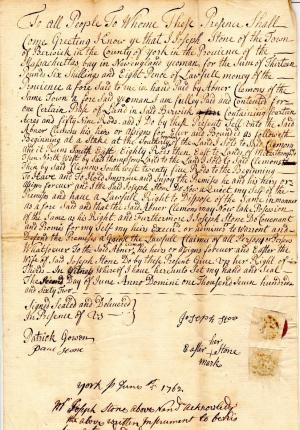 To all People To Whome These Presence Shall
Come Greeting Know ye that I Joseph Stone of the Town
of Berwick in the County of york in the Provence of the
Massachuttes bay in Newengland yeoman, for the Sum of Thirteen
Pounds Six Shillings and Eight Pence of Lawfull money of the
Provence a fore Said to me in hand Paid by Honor Clemons of the
Same Town a fore Said yeoman, I am fully Paid and Contented for one
Certain Tract of Land in Said Berwick Containing fourteen
Acres and fifty nine Rods, and I Do by these Present Sell unto the Said
Honor Clemons his heirs or assigns for Ever and Bounded as followeth
Beginning at a Stake at the of the Land I Sold to Said Clemons
and it South west Eighty Rods then East
Then North West by Said to the Land I Sold to Said Clemons
then by Said Clemons South west twenty five Rods to the Beginning
To Have and To Hold and the Premise and his heirs or
assigns forever and I the Said Joseph Stone Do avouch my Self of the
Premise and have a Lawfull Right to Dispose of the Same in manner
as a fore Said and that the Said Honor Clemons may Have Possession
of the Same as his Right and Furthermore I Joseph Stone Do Covenant
and Promis for my Self my heirs to Warrent and
Defend the Premise against the Lawfull Claims of all Persons
Whatsoever To the Said Honor his heirs or assigns forever and Easter the
Wife of Said Joseph Stone Do by these Present Give up her Right of
Thirds. In Witness Whereof I have hereunto Set my hand and Seal
The Second Day of June Anno Domini one Thousand Seven hundred
and Sixty Two
Signed Sealed and Delivered
In Presence of Us
Joseph Stone
Patrick Gowen
her
Easter Stone
mark
york June 1762
Joseph Stone above Named acknowledg
the above written Instrument to be his